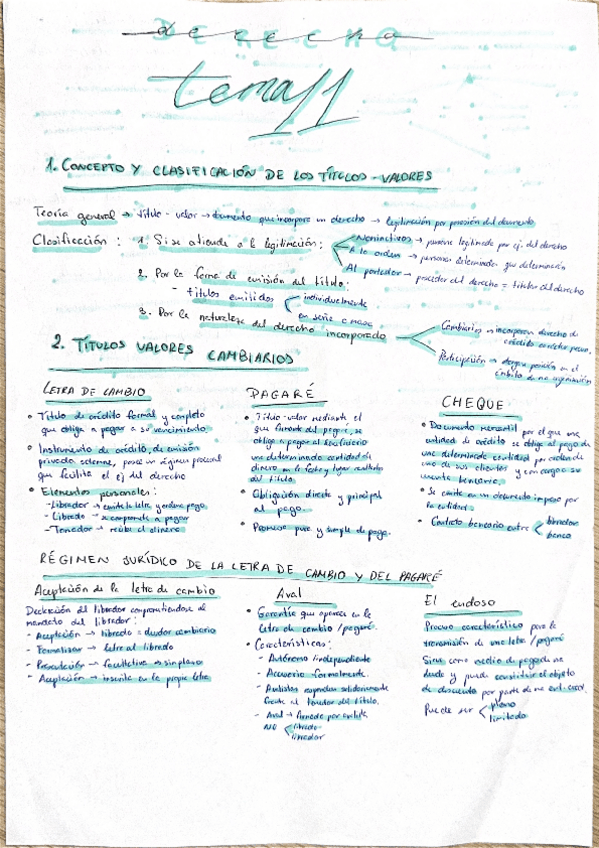 derecho
tema 11
1. CONCEPTO Y CLASIFICACIÓN DE LOS TÍTULOS-VALORES
Teoría general → título-valor → documento que incorpora un derecho → legitimación por posesión del documento
Clasificación: 1. Si se atiende a la legitimación:
Nominativos → persona legitimada por ej. del derecho
A la orden → persona determinada
Al portador → poseedor del derecho = titular del derecho
2. Por la forma de emisión del título.
- títulos emitidos
individualmente
en serie o masa
3. Por la naturaleza del derecho incorporado
Cambiarios → incorporan derecho de
crédito
Participación → posición en el
ámbito de una organización
2. TÍTULOS VALORES CAMBIARIOS
LETRA DE CAMBIO
• Título de crédito formal y completo
que obliga a pagar a su vencimiento.
• Instrumento de crédito, de emisión
privada solemne, posee un régimen procesal
que facilita el ej del derecho
• Elementos personales:
- Librador → emite la letra y ordena pago.
- Librado → se compromete a pagar
- Tenedor → recibe el dinero
PAGARÉ
• Título-valor mediante el
que firmante del pagaré, se
obliga a pagar al beneficiario
una determinada cantidad de
dinero en la fecha y lugar
del título.
• Obligación directa y principal
al pago.
• Promesa pura y simple de pago.
CHEQUE
• Documento mercantil por el que una
entidad de crédito se obliga al pago de
una determinada cantidad por orden de
uno de sus clientes y con cargo a su
cuenta bancaria.
• Se emite en un documento impreso por
la entidad.
• Contrato bancario entre
librador
banco
RÉGIMEN JURÍDICO DE LA LETRA DE CAMBIO Y DEL PAGARÉ
Aceptación de la letra de cambio
Declaración del librador comprometiendose al
mandato del librador:
- Aceptación → librado = deudor cambiario
- letra al librado
- facultativa → sin plazo
- Aceptación → inscrita en la propia letra
Aval
• Garantía que aparece en la
letra de cambio / pagaré.
• Características:
- Autónomo / independiente
- Accesorio formalmente.
- Avalistas responden solidariamente
frente al tenedor del título.
- Aval → firmado por
NO
librado
librador
El endoso
característico para la
transmisión de una letra / pagaré
Sirve como medio de pago de una
deuda y puede constituir el objeto
de descuento por parte de una ent. cred.
Puede ser
pleno
limitado